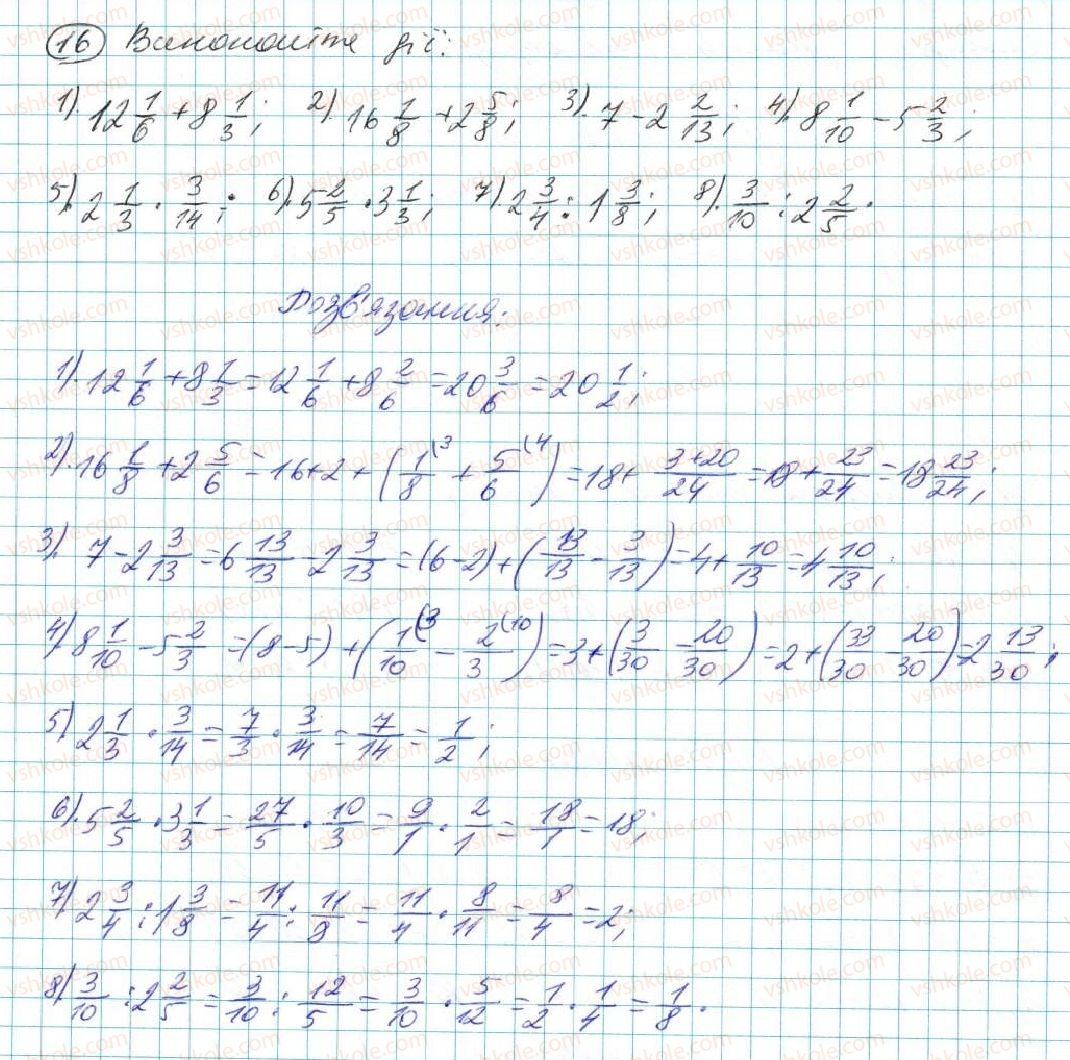 16 Виконайте дії:
1). 12 1/6 + 8 1/3; 2). 16 1/8 + 2 5/8; 3). 7 - 2 2/13; 4). 8 1/10 - 5 2/3;
5). 2 1/3 · 3/14; 6). 5 2/5 · 3 1/3; 7). 2 3/4 : 1 3/8; 8). 3/10 : 2 2/5.
Розв'язання:
1). 12 1/6 + 8 1/3 = 12 1/6 + 8 2/6 = 20 3/6 = 20 1/2;
2). 16 1/8 + 2 5/6 = 16 + 2 + (1/8 (3 + 5/6 (4) = 18 + (3+20)/24 = 18 + 23/24 = 18 23/24;
3). 7 - 2 3/13 = 6 13/13 - 2 3/13 = (6 - 2) + (13/13 - 3/13) = 4 + 10/13 = 4 10/13;
4) 8 1/10 - 5 2/3 = (8 - 5) + (1/10 (3 - 2/3 (10) = 3 + (3/30 - 20/30) = 2 + (33/30 - 20/30) = 2 13/30;
5) 2 1/3 · 3/14 = 7/3 · 3/14 = 7/14 = 1/2;
6). 5 2/5 · 3 1/3 = 27/5 · 10/3 = 9/1 · 2/1 = 18/1 = 18;
7) 2 3/4 : 1 3/8 = 11/4 : 11/8 = 11/4 · 8/11 = 8/4 = 2;
8) 3/10 : 2 2/5 = 3/10 : 12/5 = 3/10 · 5/12 = 1/2 · 1/4 = 1/8.
vshkole.com